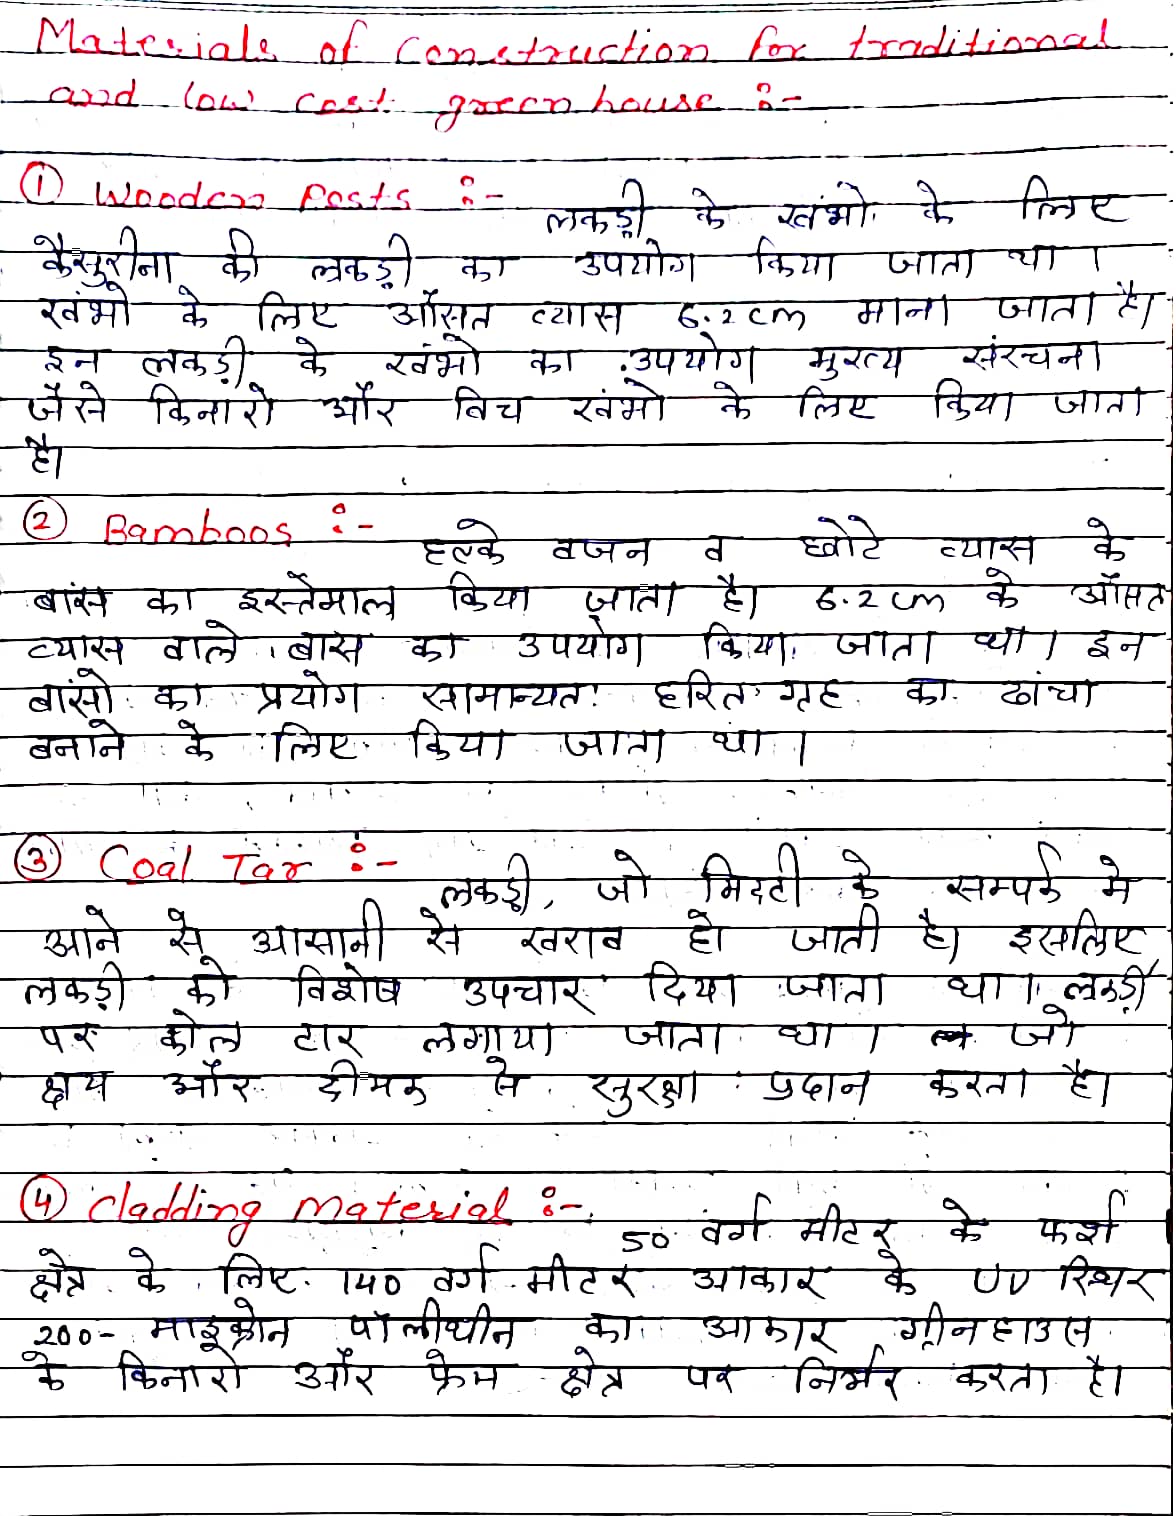 Materials of Construction for traditional
and low cost green house :-
① Wooden Posts :- लकड़ी के खंभो के लिए
कैसुरीना की लकड़ी का उपयोग किया जाता था।
खंभो के लिए औसत व्यास 6.2 cm माना जाता है।
इन लकड़ी के खंभो का उपयोग मुख्य संरचना
जैसे किनारो और विच खंभो के लिए किया जाता
है।
② Bamboos :- हल्के वजन व छोटे व्यास के
बांस का इस्तेमाल किया जाता है। 6.2 cm के औसत
व्यास वाले बास का उपयोग किया जाता था। इन
बांसो का प्रयोग सामान्यतः हरित गृह का ढांचा
बनाने के लिए किया जाता था।
③ Coal Tar :- लकड़ी, जो मिट्टी के सम्पर्क मे
आने से आसानी से खराब हो जाती है। इसलिए
लकड़ी को विशेष उपचार दिया जाता था। लकड़ी
पर कोल टार लगाया जाता था। जो
क्षय और दीमक से सुरक्षा प्रदान करता है।
④ Cladding Material :- 50 वर्ग मीटर के फर्श
क्षेत्र के लिए 140 वर्ग मीटर आकार के UV स्थिर
200- माइक्रोन पॉलीथीन का आकार ग्रीनहाउस
के किनारो और फ्रेम क्षेत्र पर निर्भर करता है।